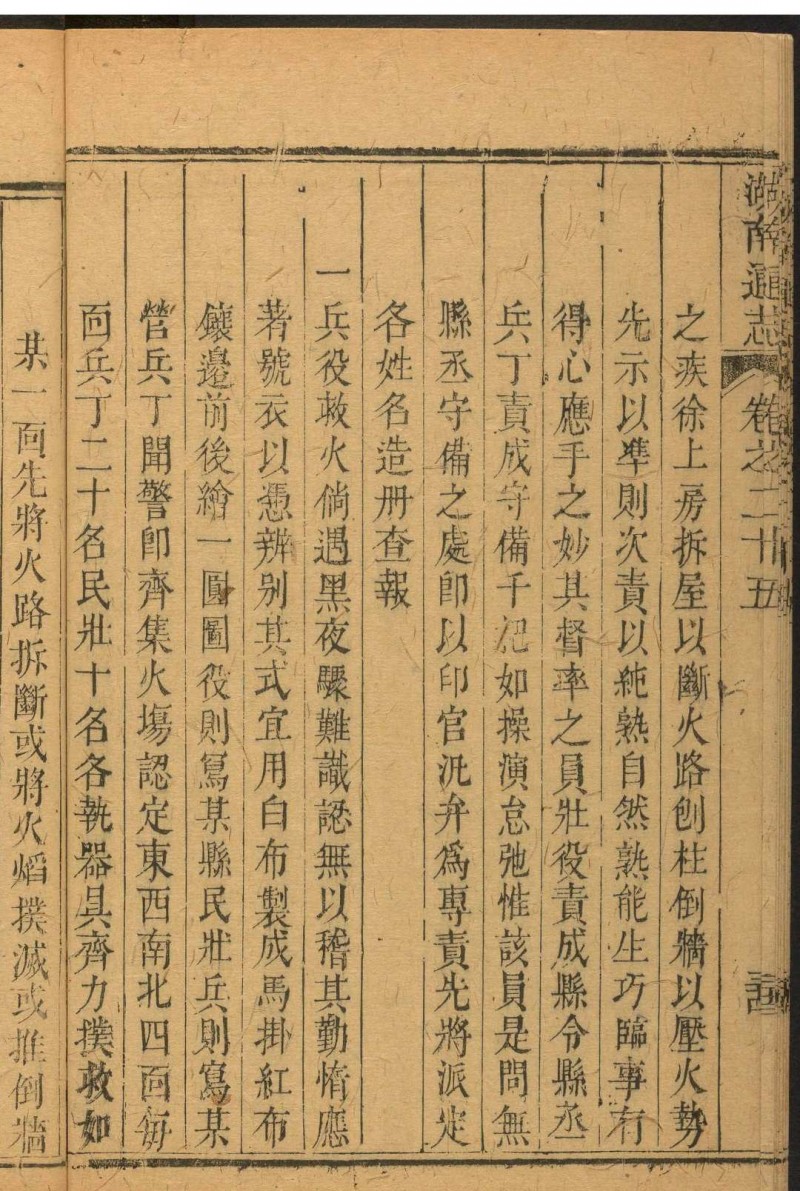 湖南通志 卷之二十五
之疾徐上房拆屋以斷火路刨柱倒牆以壓火勢
先示以準則次責以純熟自然熟能生巧臨事有
得心應手之妙其督率之員壯役責成縣令縣丞
兵丁責成守備千把如操演怠弛惟該員是問無
縣丞守備之處卽以印官汛弁爲專責先將派定
各姓名造册查報
一兵役救火倘遇黑夜驟難識認無以稽其勤惰應
著號衣以憑辨别其式宜用白布製成馬掛紅布
鑲邊前後繪一圓圖役則寫某縣民壯兵則寫某
營兵丁聞警卽齊集火塲認定東西南北四面每
面兵丁二十名民壯十名各執器具齊力撲救如
某一面先將火路拆斷或將火熖撲滅或推倒牆